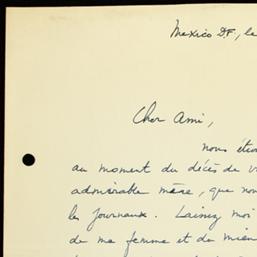 Mexico D.F., le
Cher Ami,
nous étio
au moment du décès de v
admirable mère, que nou
les journaux. Laissez moi
de ma femme et du mien